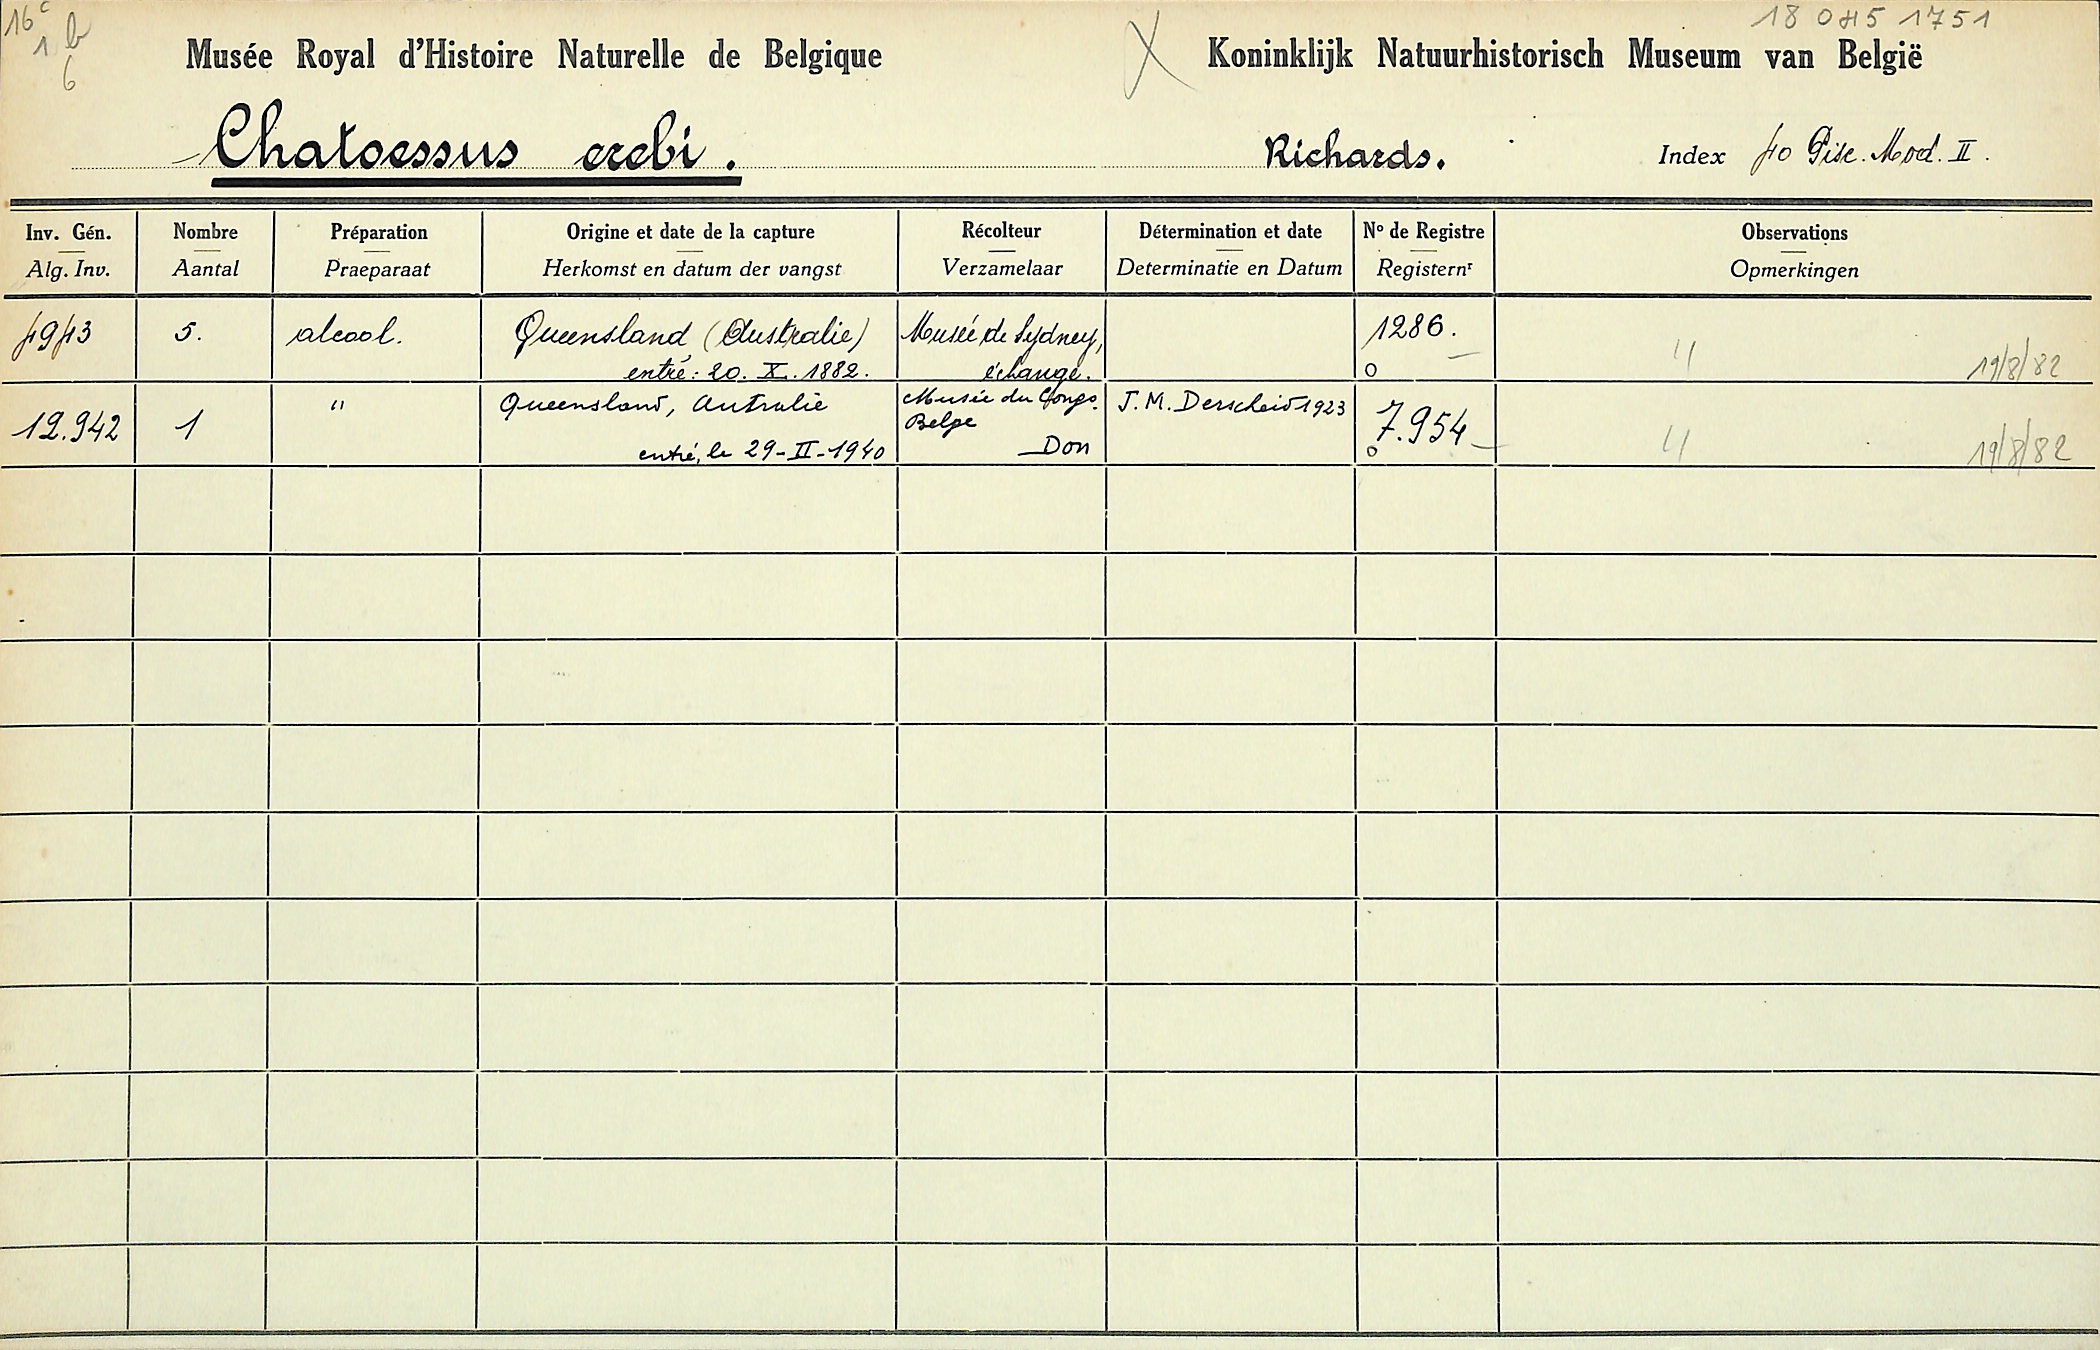 16c
1 b
6
18 045 1751
Musée Royal d'Histoire Naturelle de Belgique
X
Koninklijk Natuurhistorisch Museum van België
Chatoessus erebi.
Richards.
Index 40 Pisc. Mod. II.
Inv. Gén.
Alg. Inv.
Nombre
Aantal
Préparation
Praeparaat
Origine et date de la capture
Herkomst en datum der vangst
Récolteur
Verzamelaar
Détermination et date
Determinatie en Datum
No de Registre
Registernr
Observations
Opmerkingen
4943
5.
alcool.
Queensland (Australie)
entré: 20. X. 1882.
Musée de Sydney,
échange.
1286.
o
"
19/8/82
12.942
1
"
Queensland, Autralie
entré, le 29-II-1940
Musée du Congo
Belge
Don
J. M. Derscheid 1923
7.954
o
"
19/8/82